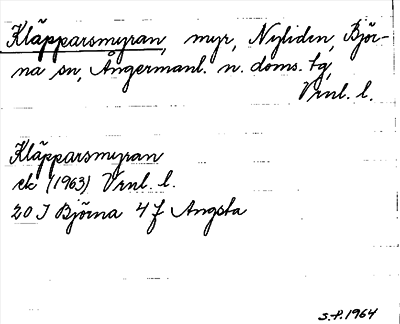 Kläpparsmyran, myr, Nyliden, Björ-
na sn, Ångermanl. n. doms. tg,
Vrnl. l.
Kläpparsmyran
ek (1963) Vrnl. l.
20 I Björna 4 f Angsta
S.P. 1964